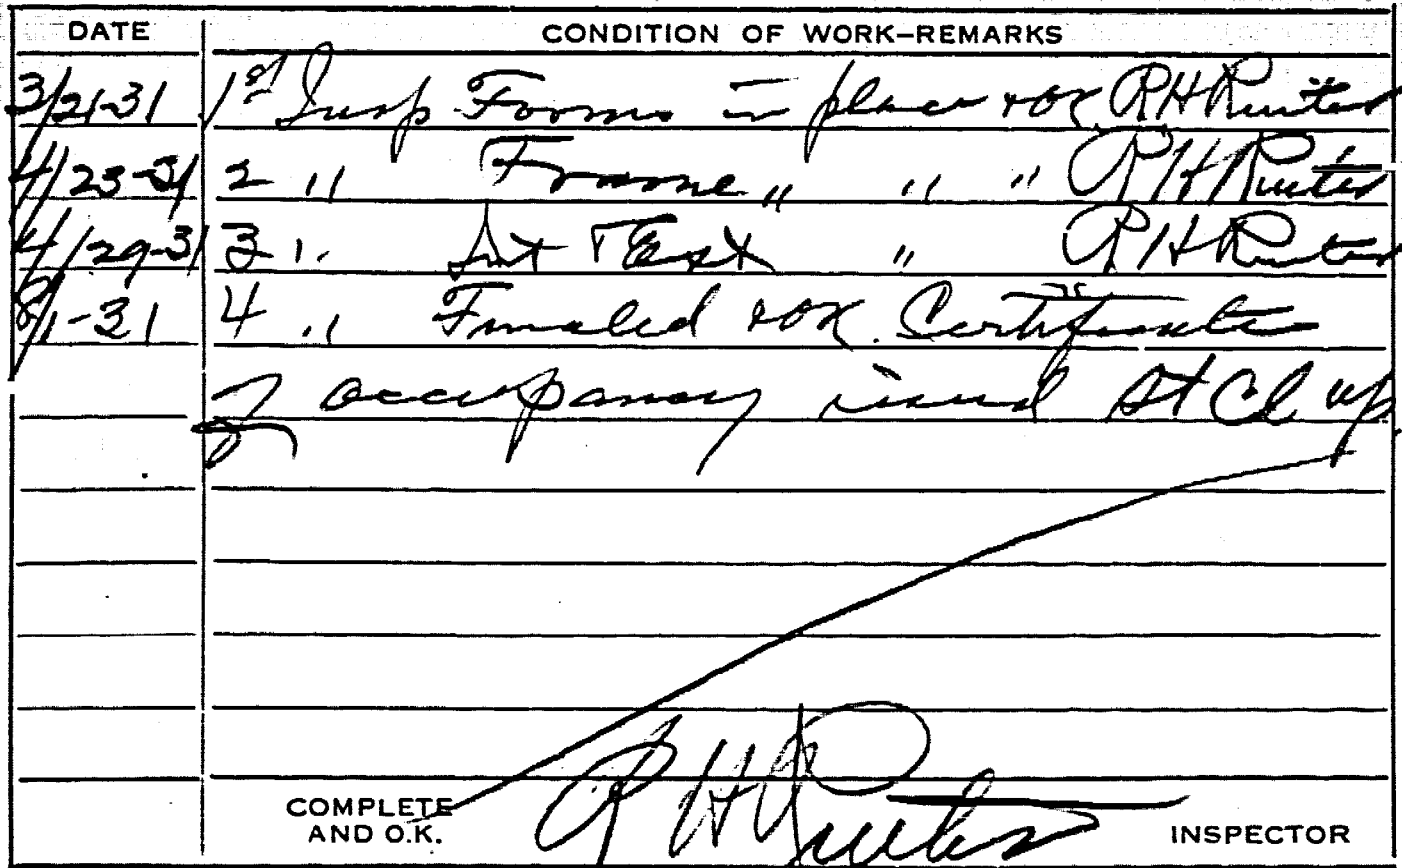 DATE CONDITION OF WORK–REMARKS
3/21-31 1st Insp Forms in place & OK. R H Ruiter
4/23-31 2 " Frame " " " R H Ruiter
4/29-31 3 " Int & Ext " R H Ruiter
8/1-31 4 " Finaled & OK. Certificate
of occupancy issued St Cl up.
COMPLETE
AND O.K. R H Ruiter INSPECTOR